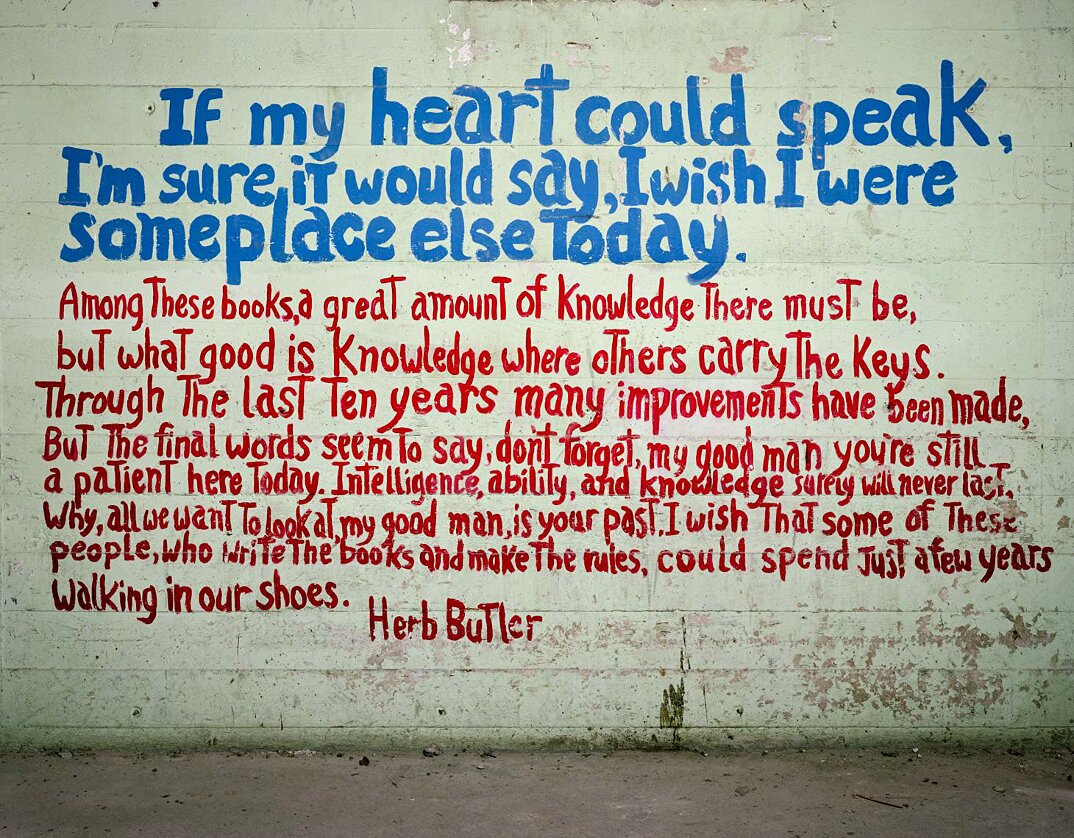 If my heart could speak,
I'm sure, it would say, I wish I were
someplace else Today.
Among These books, a great amount of Knowledge There must be,
but what good is Knowledge where others carry The Keys.
Through The last Ten years many improvements have been made,
But The final words seem To say, don't forget, my good man you're still
a patient here Today. Intelligence, ability, and knowledge surely will never last.
Why, all we want To look at, my good man, is your past. I wish That some of These
people, who write The books and make The rules, could spend Just a few years
walking in our shoes.
Herb Butler